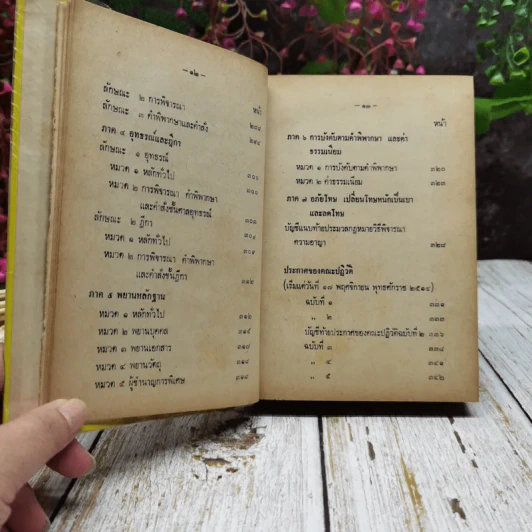 — ๑๒ —
หน้า
ลักษณะ ๒ การพิจารณา
ลักษณะ ๓ คำพิพากษาและคำสั่ง
ภาค ๔ อุทธรณ์และฎีกา
ลักษณะ ๑ อุทธรณ์
หมวด ๑ หลักทั่วไป ๓๐๐
หมวด ๒ การพิจารณา คำพิพากษา
และคำสั่งชั้นศาลอุทธรณ์
ลักษณะ ๒ ฎีกา
หมวด ๑ หลักทั่วไป ๓๐๙
หมวด ๒ การพิจารณา คำพิพากษา
และคำสั่งชั้นฎีกา ๓๑๒
ภาค ๕ พยานหลักฐาน
หมวด ๑ หลักทั่วไป ๓๑๒
หมวด ๒ พยานบุคคล
หมวด ๓ พยานเอกสาร ๓๑๗
หมวด ๔ พยานวัตถุ ๓๑๘
หมวด ๕ ผู้ชำนาญการพิเศษ ๓๑๘
— ๑๓ —
หน้า
ภาค ๖ การบังคับตามคำพิพากษา และค่า
ธรรมเนียม
หมวด ๑ การบังคับตามคำพิพากษา ๓๒๐
หมวด ๒ ค่าธรรมเนียม ๓๒๓
ภาค ๗ อภัยโทษ เปลี่ยนโทษหนักเป็นเบา
และลดโทษ
บัญชีแนบท้ายประมวลกฎหมายวิธีพิจารณา
ความอาญา ๓๒๘
ประกาศของคณะปฏิวัติ
(เริ่มแต่วันที่ ๑๗ พฤศจิกายน พุทธศักราช ๒๕๑๔)
ฉบับที่ ๑ ๓๓๑
„ ๒ ๓๓๓
บัญชีท้ายประกาศของคณะปฏิวัติฉบับที่ ๒ ๓๓๖
ฉบับที่ ๓ ๓๓๙
„ ๔ ๓๔๑
„ ๕ ๓๔๒